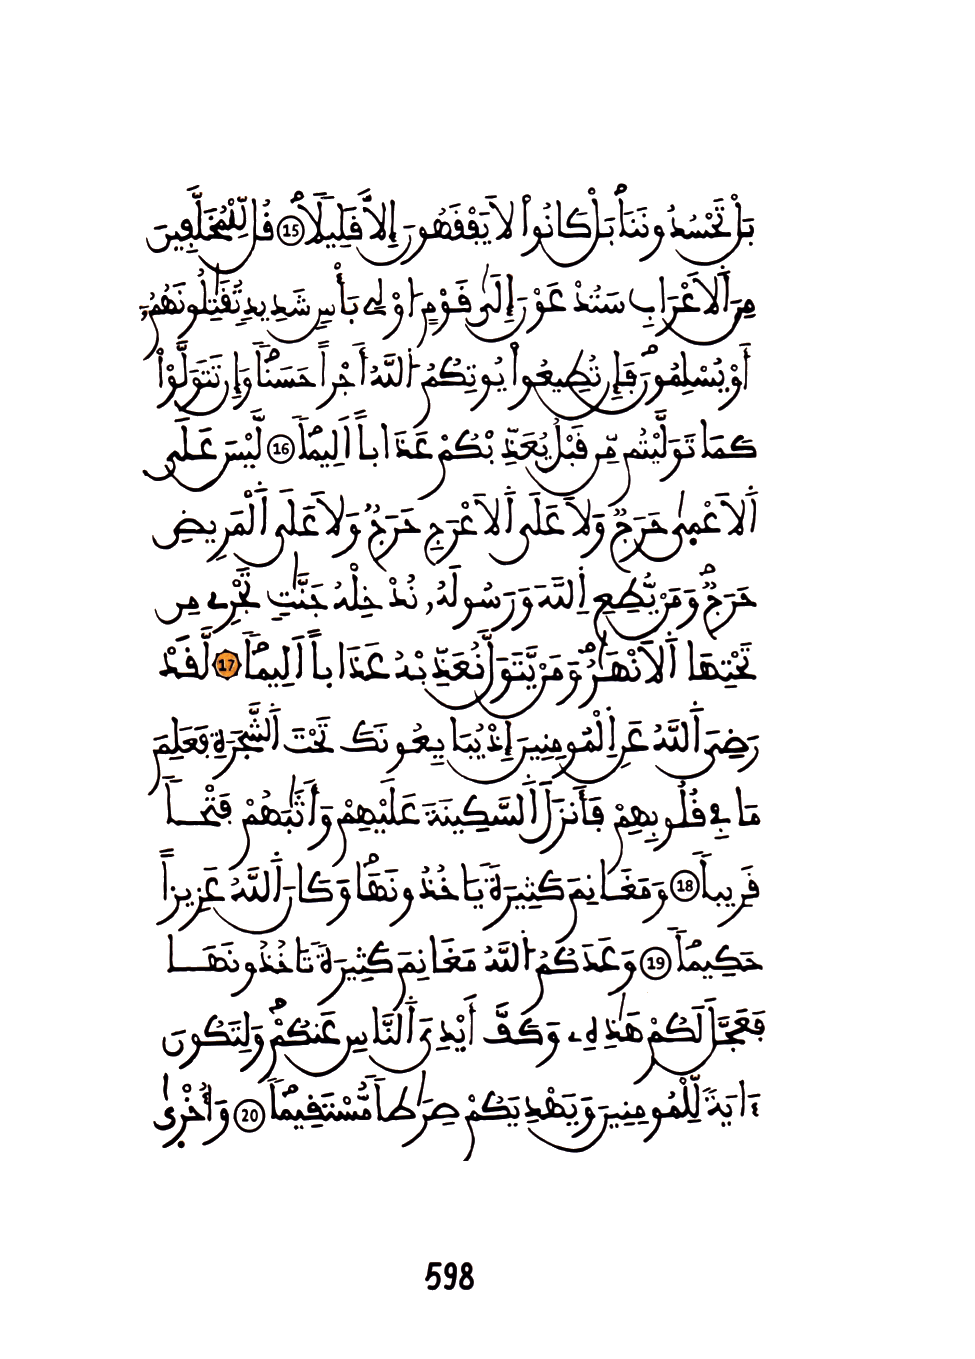 بَلْ تَحْسُدُونَنَاۖ بَلْ كَانُواْ لَا يَفْقَهُونَ إِلَّا قَلِيلاٗۖ 15 قُل لِّلْمُخَلَّفِينَ
مِنَ اَ۬لَاعْرَابِ سَتُدْعَوْنَ إِلَىٰ قَوْمٍ ا۟وْلِے بَأْسٖ شَدِيدٖ تُقَٰتِلُونَهُمُۥٓ
أَوْ يُسْلِمُونَۖ فَإِن تُطِيعُواْ يُوتِكُمُ اُ۬للَّهُ أَجْراً حَسَناٗۖ وَإِن تَتَوَلَّوْاْ
كَمَا تَوَلَّيْتُم مِّن قَبْلُ يُعَذِّبْكُمْ عَذَاباً اَلِيماٗۖ 16 لَّيْسَ عَلَى
اَ۬لَاعْم۪ىٰ حَرَجٞ وَلَا عَلَى اَ۬لَاعْرَجِ حَرَجٞ وَلَا عَلَى اَ۬لْمَرِيضِ
حَرَجٞۖ وَمَنْ يُّطِعِ اِ۬للَّهَ وَرَسُولَهُۥ نُدْخِلْهُ جَنَّٰتٖ تَجْرِے مِن
تَحْتِهَا اَ۬لَانْهَٰرُۖ وَمَنْ يَّتَوَلَّ نُعَذِّبْهُ عَذَاباً اَلِيماٗۖ 17 لَّقَدْ
رَضِيَ اَ۬للَّهُ عَنِ اِ۬لْمُومِنِينَ إِذْ يُبَايِعُونَكَ تَحْتَ اَ۬لشَّجَرَةِ فَعَلِمَ
مَا فِے قُلُوبِهِمْ فَأَنزَلَ اَ۬لسَّكِينَةَ عَلَيْهِمْ وَأَثَٰبَهُمْ فَتْحاٗ
قَرِيباٗ 18 وَمَغَانِمَ كَثِيرَةٗ يَاخُذُونَهَاۖ وَكَانَ اَ۬للَّهُ عَزِيزاً
حَكِيماٗۖ 19 وَعَدَكُمُ اُ۬للَّهُ مَغَانِمَ كَثِيرَةٗ تَاخُذُونَهَا
فَعَجَّلَ لَكُمْ هَٰذِهِۦ وَكَفَّ أَيْدِيَ اَ۬لنَّاسِ عَنكُمْۖ وَلِتَكُونَ
ءَايَةٗ لِّلْمُومِنِينَ وَيَهْدِيَكُمْ صِرَٰطاٗ مُّسْتَقِيماٗۖ 20 وَأُخْر۪ىٰ
598